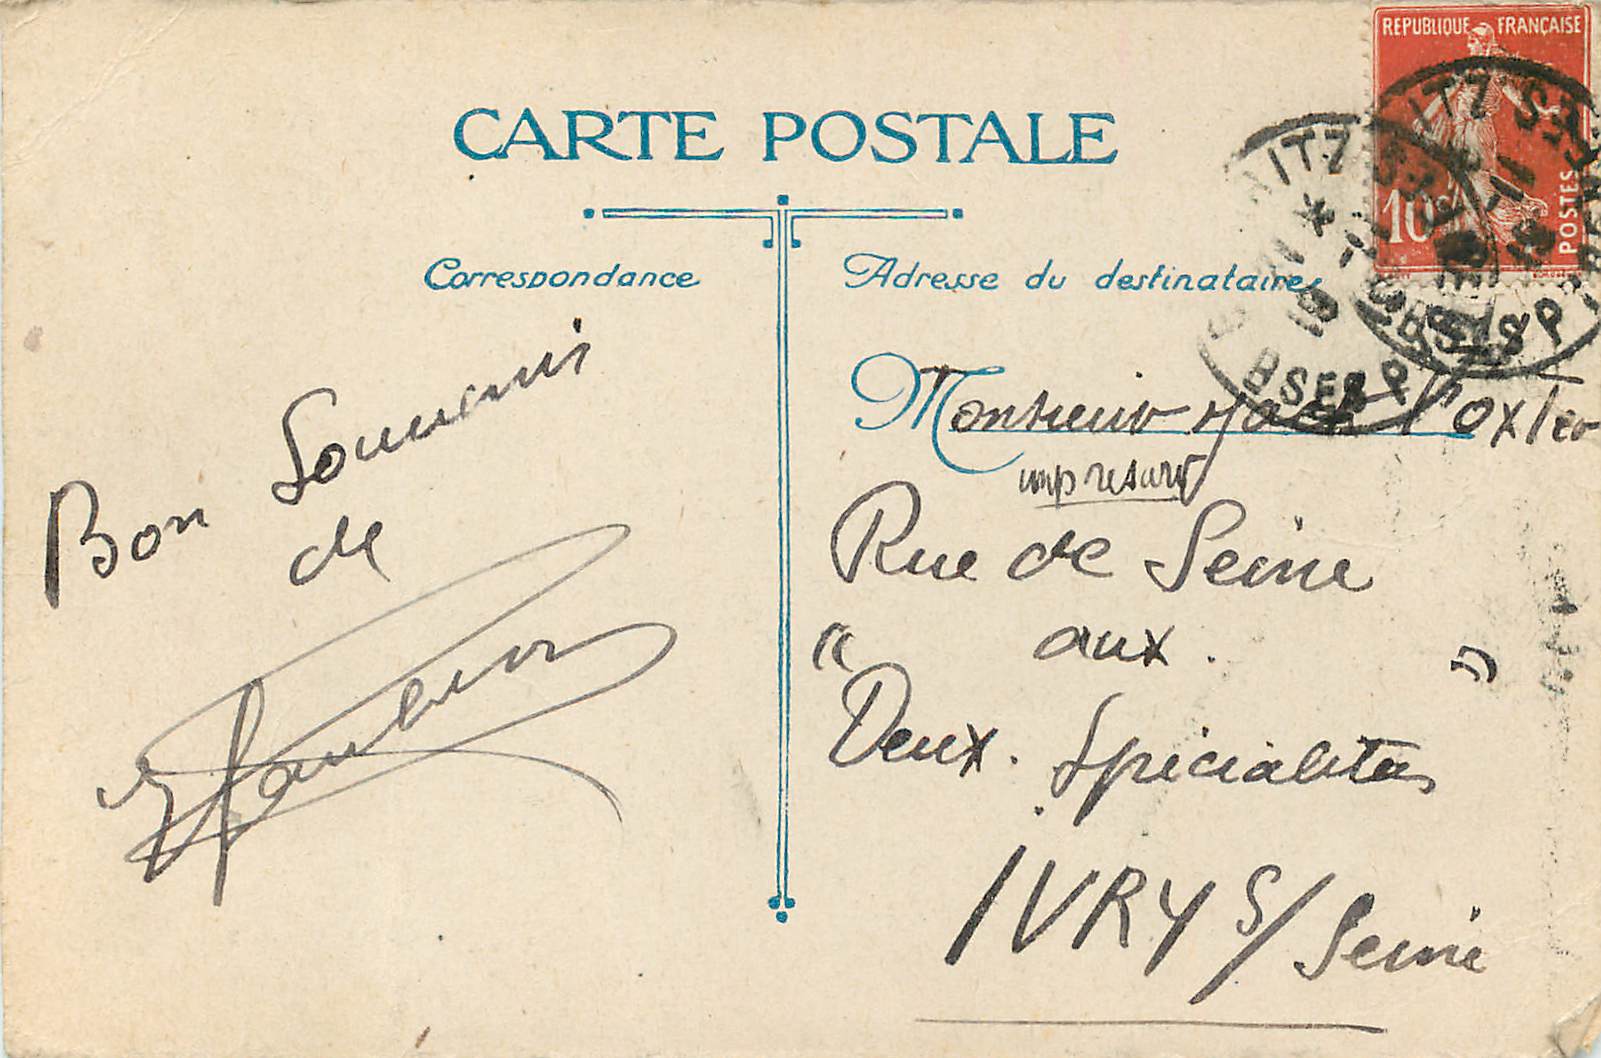 REPUBLIQUE FRANÇAISE
10
POSTES
CARTE POSTALE
Correspondance
Adresse du destinataire
Bon Souvenir
de
Monsieur Jack
impresario
Rue de Seine
" aux "
Deux. Spécialités
IVRY S/ Seine